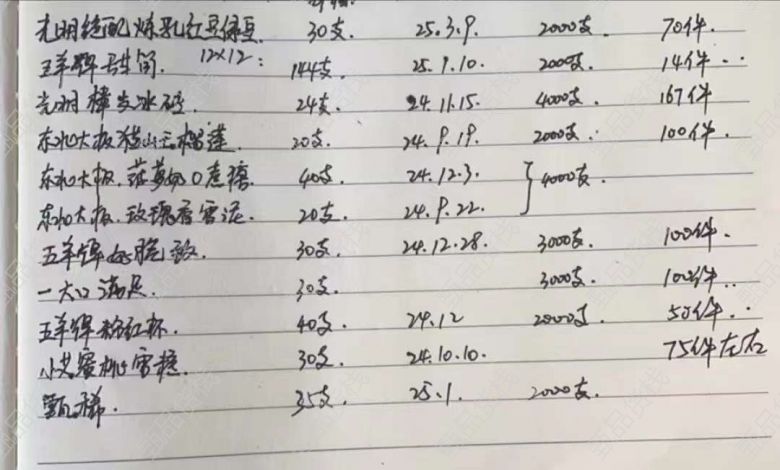 光明绝配炼乳红豆绿豆. 30支. 25.3.9. 2000支 70件.
五羊牌 筒. 12×12: 144支. 25.1.10. 2000支. 14件..
光明棒 冰砖. 24支. 24.11.15. 4000支. 167件
东北大板猫山王榴莲. 20支. 24.9.19. 2000支. 100件.
东北大板. 菠萝 0蔗糖. 40支. 24.12.3. } 4000支.
东北大板. 玫瑰香雪泥. 20支. 24.9.22.
五羊牌 脆 . 30支. 24.12.28. 3000支. 100件.
一大口满足. 30支. 3000支. 100件..
五羊牌粉红杯. 40支. 24.12 2000支. 50件..
小艾蜜桃雪糕. 30支. 24.10.10. 75件左右
甄稀. 35支. 25.1. 2000支.